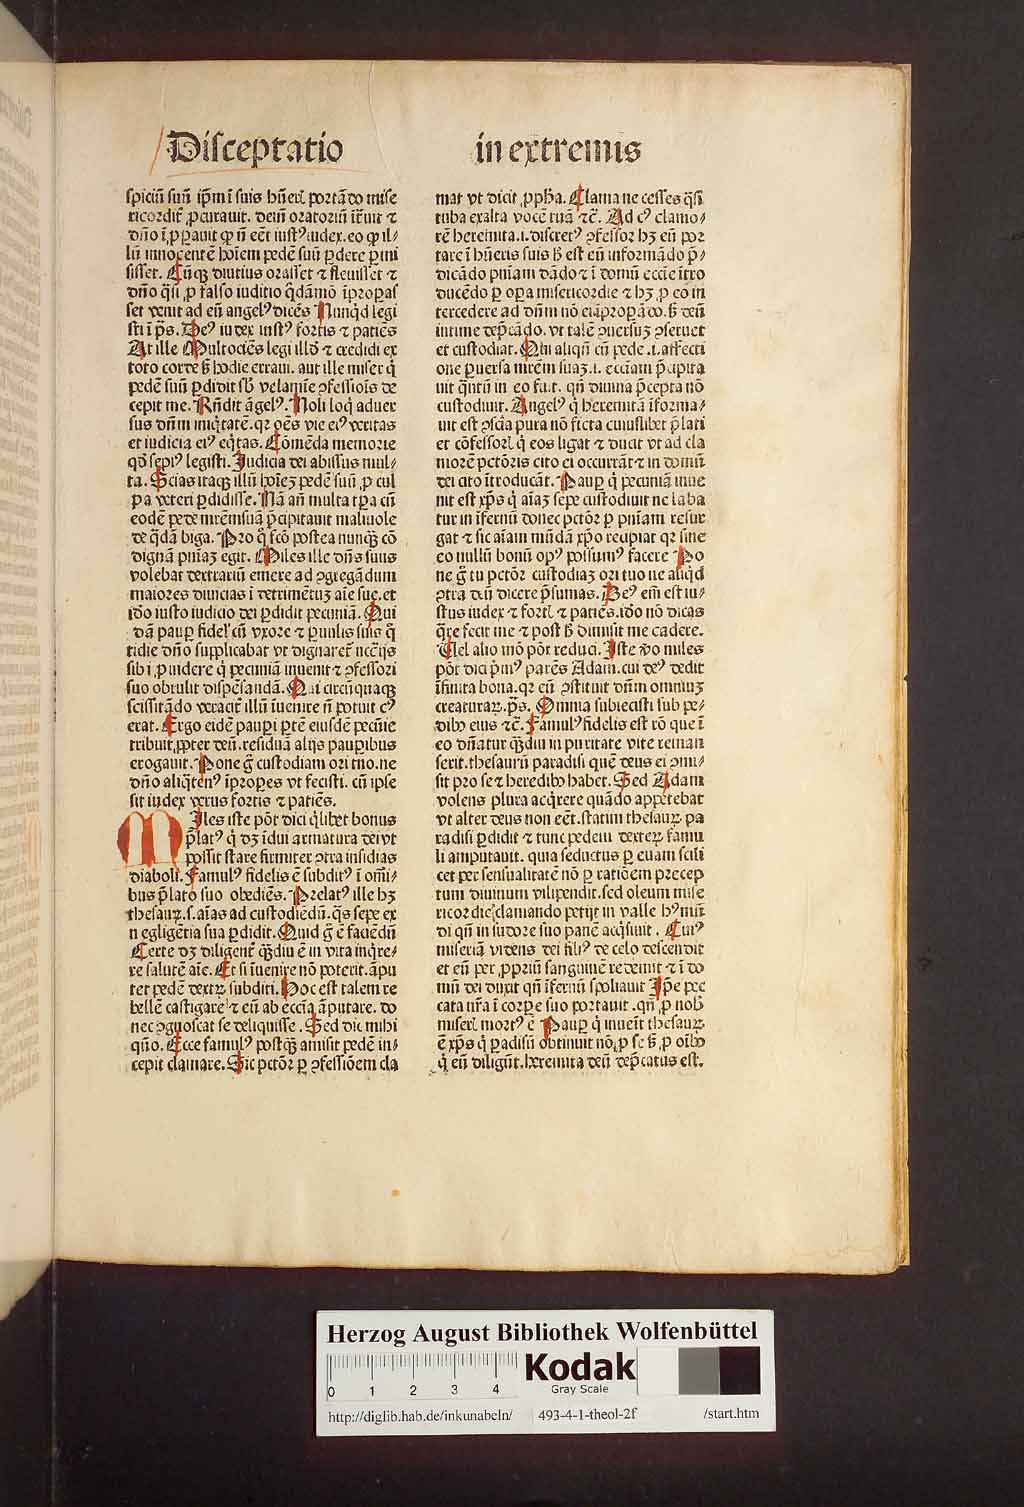 Disceptatio in extremis
spiciū suū ip̄m ī suis hn̄erl portādo mise
ricordit̄ ꝓcurauit. deīn oratoriū īt̄uit ⁊
dn̄o īꝓpauit ꝙ nō eēt iustꝰ iudex. eo ꝙ il⸗
lū innocentē hoīem pedē suū ꝑdere ꝑmi
sisset. Cūqꝫ diutius orasset ⁊ fleuisset ⁊
dn̄o q̄si ꝓ falso iuditio q̄dāmō īproꝑas
set venit ad eū angelꝰ dicēs Nunq̄d legi
sti ī ps̄. Deꝰ iudex iustꝰ fortis ⁊ patiēs
At ille Multociēs legi illd̄ ⁊ credidi ex
toto corde sꝫ hodie erraui. aut ille miser q̄
pedē suū ꝑdidit sb̄ velamīe ꝯfessiōis de
cepit me. Rn̄dit āgelꝰ. Noli loq̄ aduer
sus dn̄m iniq̄tatē. qr oēs vie eiꝰ veritas
et iudicia eiꝰ eq̄tas. Cōmēda memorie
qd̄ sepiꝰ legisti. Judicia dei abissus mul⸗
ta. Scias itaqꝫ illū hoīeꝫ pedē suū ꝓ cul
pa veteri ꝑdidisse. Nā añ multa tp̄a cū
eodē pede mr̄em suā p̄cipitauit maliuole
de q̄dā biga. Pro q̄ fcō postea nunqꝫ cō
dignā pn̄iaꝫ egit. Miles ille dn̄s suus
volebat dextrariū emere ad ꝯgregādum
maiores diuicias ī detrimētuꝫ aīe sue. et
iō iusto iudicio dei ꝑdidit pecuniā. Qui
dā pauꝑ fidel̄ cū vxore ⁊ ꝑuulis suis q̄
tidie dn̄o supplicabat vt dignaret̄ nccījs
sibi ꝓuidere q̄ pecuniā inuenit ⁊ ꝯfessori
suo obtulit dispēsandā. Qui circūquaqꝫ
scissitādo veracit̄ illū īuenire nō potuit cꝰ
erat. Ergo eidē pauꝑi ꝑtē eiusdē pecūie
tribuit ꝓpter deū. residuā alijs pauꝑibus
erogauit. Pone ḡ custodiam ori tuo. ne
dn̄o aliq̄tenꝰ īproꝑes vt fecisti. cū ipse
sit iudex verus fortis ⁊ patiēs.
MJles iste pōt dici q̄libet bonus
p̄latꝰ q̄ dꝫ īdui armatura dei vt
possit stare firmiter ꝯtra insidias
diaboli. Famulꝰ fidelis ē subditꝰ ī om̄i⸗
bus p̄lato suo obediēs. Prelatꝰ ille hꝫ
thesauꝝ .s. aīas ad custodiēdū. q̄s sepe ex
negligētia sua ꝑdidit. Quid ḡ ē faciēdū
Certe dꝫ diligent̄ qꝫdiu ē in vita inq̄re⸗
re salutē aīe. Et si īuenire nō poterit. āpu
tet pedē dextꝝ subditi. Hoc est talem re
bellē castigare ⁊ eū ab eccīa āputare. do
nec ꝯgnoscat se deliquisse. Sed dic mihi
qūo. Ecce famulꝰ postqꝫ amisit pedē in⸗
cepit clamare. Sic pctōr ꝑ ꝯfessiōem cla
mat vt dicit ꝓph̄a. Clama ne cesses q̄si
tuba exalta vocē tuā ⁊c̄. Ad cꝰ clamo⸗
rē heremita .i. discretꝰ ꝯfessor hꝫ eū por
tare ī hn̄eris suis hꝭ est eū informādo p̄⸗
dicādo pn̄iam dādo ⁊ ī domū eccīe ītro
ducēdo ꝑ oꝑa misericordie ⁊ hꝫ ꝓ eo in
tercedere ad dn̄m nō ei īproꝑādo. sꝫ deū
intime dep̄cādo. vt talē ꝯuersuꝫ ꝯseruet
et custodiat. Qui aliqn̄ cū pede .i. affecti
one ꝑuersa mr̄em suaꝫ .i. eccīam p̄cipita
uit q̄ntū in eo fuit. qn̄ diuina p̄cepta nō
custodiuit. Angelꝰ q̄ heremitā īforma⸗
uit est ꝯscīa pura nō ficta cuiuslibet p̄lati
et cōfessorl̄ q̄ eos ligat ⁊ ducit vt ad cla
morē pctōris cito ei occurrāt ⁊ in domū
dei cito ītroducāt. Pauꝑ q̄ pecuniā inue
nit est xp̄s q̄ aīaꝫ sepe custodiuit ne laba
tur in īfernū donec pctōr ꝑ pn̄iam resur
gat ⁊ sic aīam mūdā xp̄o recipiat qr sine
eo nullū bonū opꝰ possumꝰ facere Po
ne ḡ tu pctōr custodiaꝫ ori tuo ne aliq̄d
ꝯtra deū dicere p̄sumas. Deꝰ em̄ est iu⸗
stus iudex ⁊ fortl̄ ⁊ patiēs. iō nō dicas
q̄re fecit me ⁊ post hꝭ dimisit me cadere.
Uel alio mō pōt reduci. Iste vo miles
pōt dici p̄mꝰ parēs Adam. cui deꝰ dedit
īfinita bona. qr eū ꝯstituit dn̄m omniuꝫ
creaturaꝝ. ps̄. Omnia subiecisti sub pe⸗
dibꝰ eius ⁊c̄. Famulꝰ fidelis est rō que ī
eo dn̄atur qꝫdiu in puritate vite reman
serit. thesaurū paradisi quē deus ei ꝯmi⸗
sit pro se ⁊ heredibꝰ habet. Sed Adam
volens plura acq̄rere quādo appetebat
vt alter deus non eēt. statim thesauꝝ pa
radisi ꝑdidit ⁊ tunc pedem dexteꝝ famu
li amputauit. quia seductus ꝑ euam scili
cet per sensualitatē nō ꝑ ratiōem precep
tum diuinum vilipendit. sed oleum mise
ricordie clamando petijt in valle hꝰ mūdi
di qn̄ in sudore suo panē acq̄siuit. Cuiꝰ
miseriā videns dei filiꝰ de celo descendit
et eū per ꝓpriū sanguinē redemit ⁊ ī do
mū dei duxit qn̄ īfernū spoliauit Ip̄e pec
cata nr̄a ī corꝑe suo portauit. qn̄ ꝓ nob̄
miserl̄ mortꝰ ē Pauꝑ q̄ inuenit thesauꝝ
ē xp̄s q̄ ꝑadisū obtinuit nō ꝓ se sꝫ ꝓ oībꝰ
q̄ eū diligūt. heremita deū dep̄catus est.
Herzog August Bibliothek Wolfenbüttel
0 1 2 3 4
Kodak
Gray Scale
http://diglib.hab.de/inkunabeln/ 493-4-1-theol-2f /start.htm